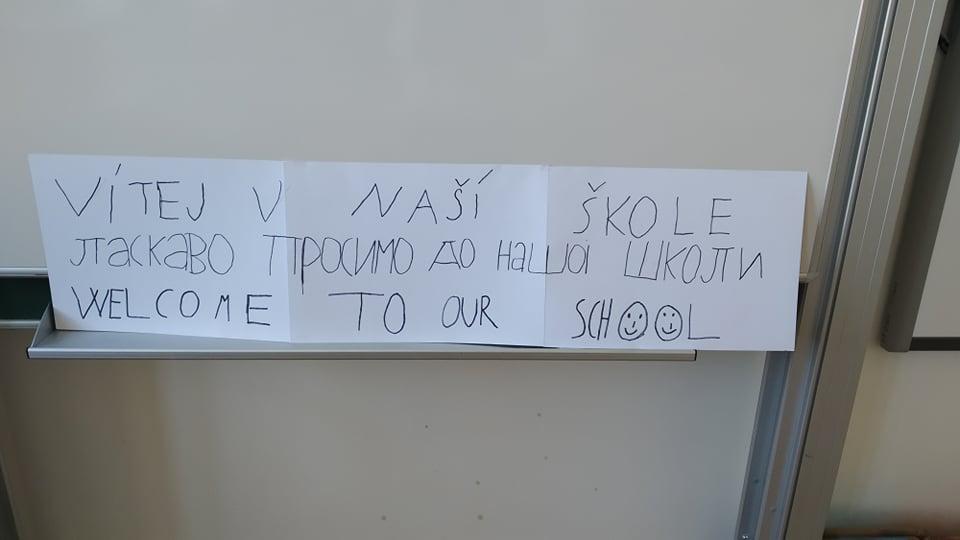 VÍTEJ V NAŠÍ ŠKOLE
ласкаво просимо до нашоі школи
WELCOME TO OUR SCHOOL